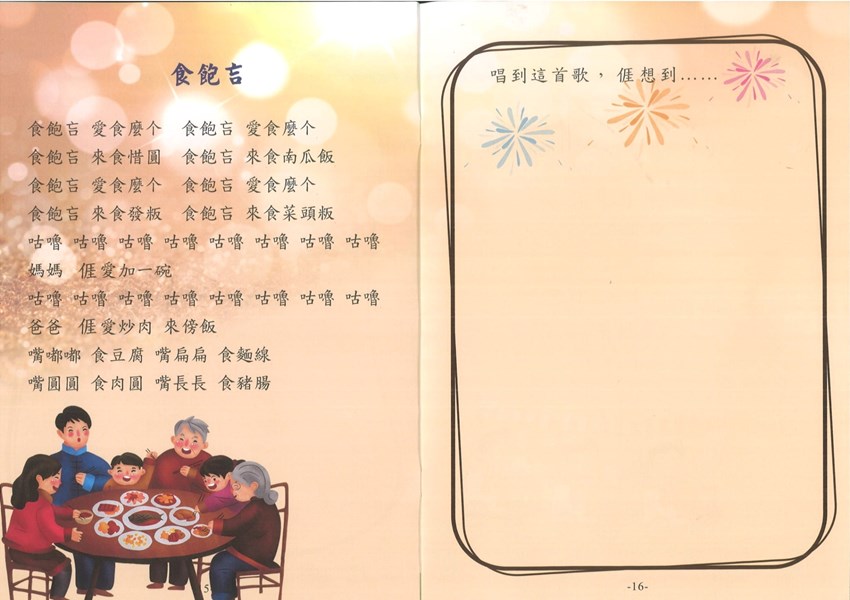 食飽吂
食飽吂 愛食麼个 食飽吂 愛食麼个
食飽吂 來食惜圓 食飽吂 來食南瓜飯
食飽吂 愛食麼个 食飽吂 愛食麼个
食飽吂 來食發粄 食飽吂 來食菜頭粄
咕嚕 咕嚕 咕嚕 咕嚕 咕嚕 咕嚕 咕嚕 咕嚕
媽媽 𠊎愛加一碗
咕嚕 咕嚕 咕嚕 咕嚕 咕嚕 咕嚕 咕嚕 咕嚕
爸爸 𠊎愛炒肉 來傍飯
嘴嘟嘟 食豆腐 嘴扁扁 食麵線
嘴圓圓 食肉圓 嘴長長 食豬腸
唱到這首歌，𠊎想到……
-16-